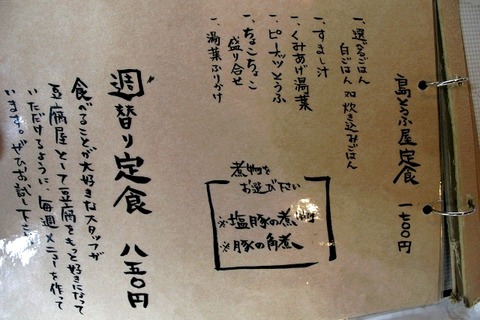 島とうふ屋定食 一七〇〇円
一、選べるごはん
白ごはん 又は 炊き込みごはん
一、すまし汁
一、くみあげ湯葉
一、ピーナッツとうふ
一、ちょこちょこ
盛り合せ
一、湯葉ふりかけ
煮物を
お選び下さい
※塩豚の煮物
※豚の角煮
週替り定食 八五〇円
食べることが大好きなスタッフが
豆腐屋として豆腐をもっと好きになって
いただけるように、毎週メニューを作って
います。ぜひお試し下さい